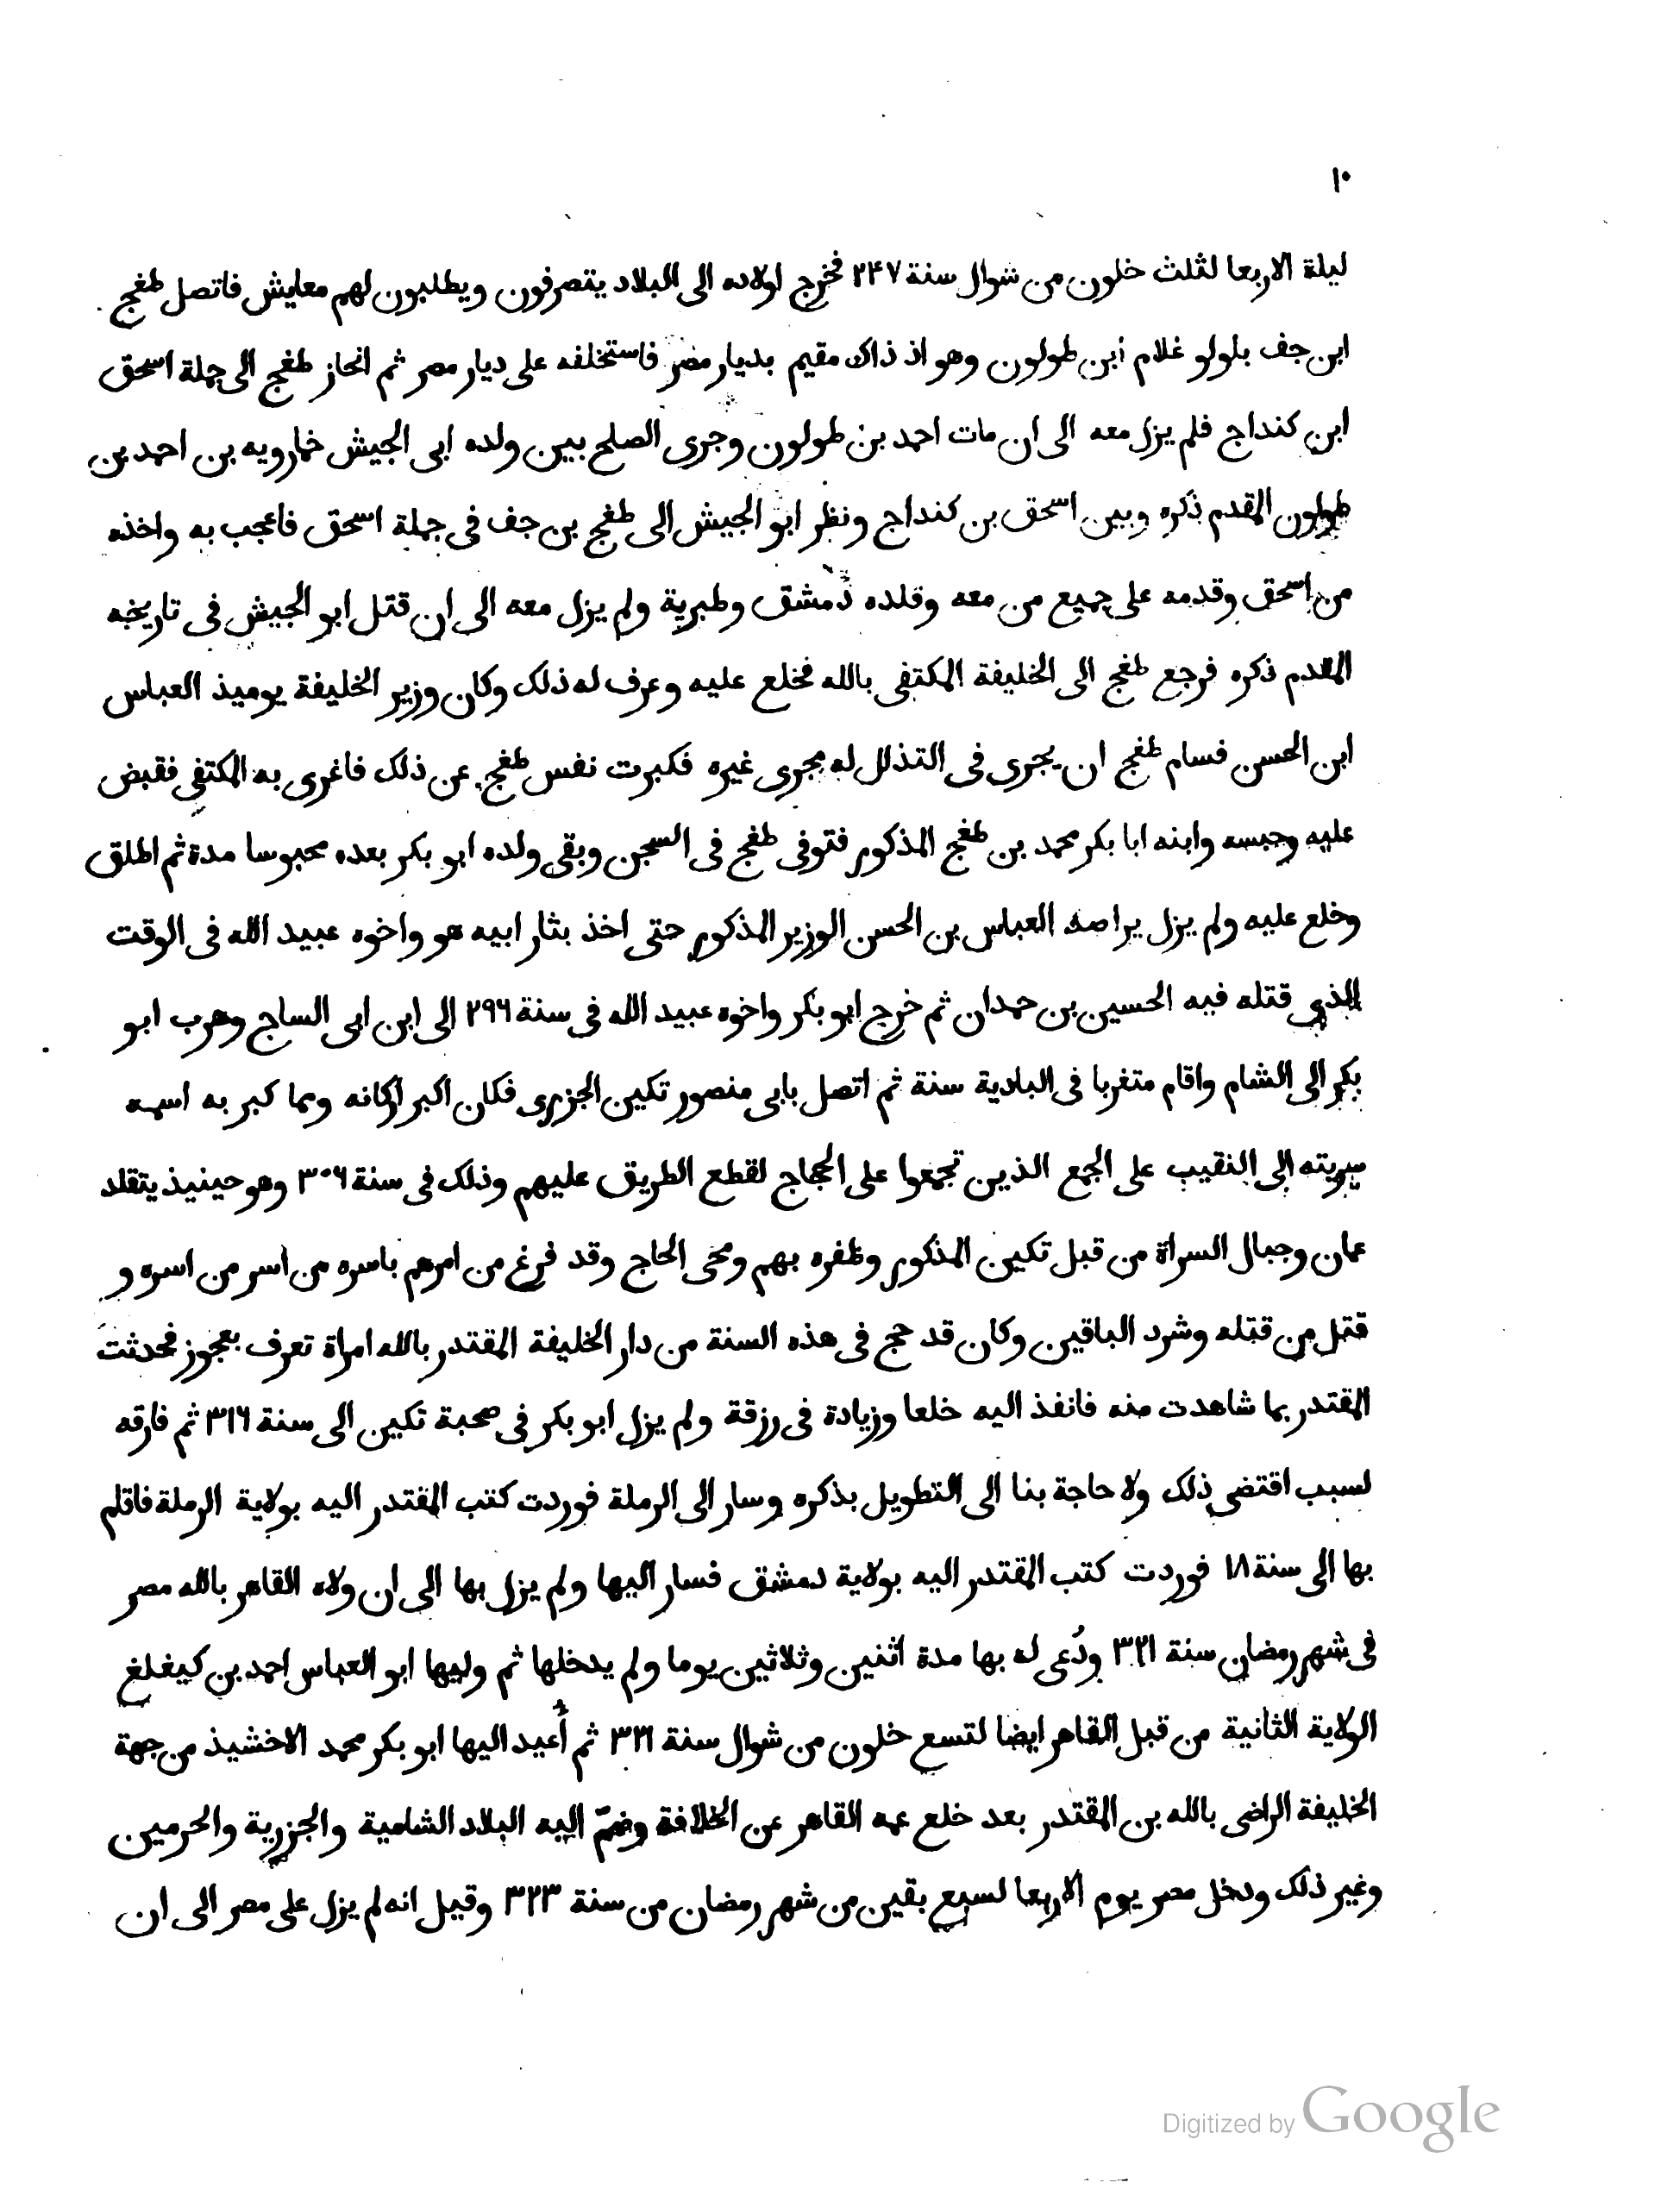 ١٠
ليلة الاربعا لثلث خلون من شوال سنة ٢٤٧ فخرج اولاده الى البلاد يتصرفون ويطلبون لهم معايش فاتصل طغج
ابن جف بلولو غلام ابن طولون وهو اذ ذاك مقيم بديار مضر فاستخلفه على ديار مصر ثم انحاز طغج الى جملة اسحق
ابن كنداج فلم يزل معه الى ان مات احمد بن طولون وجرى الصلح بين ولده ابى الجيش خمارويه بن احمد بن
طولون المقدم ذكره وبين اسحق بن كنداج ونظر ابو الجيش الى طغج بن جف فى جملة اسحق فاعجب به واخذه
من اسحق وقدمه على جميع من معه وقلده دمشق وطبرية ولم يزل معه الى ان قتل ابو الجيش فى تاريخه
المقدم ذكره فرجع طغج الى الخليفة المكتفى بالله فخلع عليه وعرف له ذلك وكان وزير الخليفة يوميذ العباس
ابن الحسن فسام طغج ان يجرى فى التذلل له مجرى غيره فكبرت نفس طغج عن ذلك فاغرى به المكتفى فقبض
عليه وحبسه وابنه ابا بكر محمد بن طغج المذكور فتوفى طغج فى السجن وبقى ولده ابو بكر بعده محبوسا مدة ثم اطلق
وخلع عليه ولم يزل يراصد العباس بن الحسن الوزير المذكور حتى اخذ بثار ابيه هو واخوه عبيد الله فى الوقت
الذى قتله فيه الحسين بن حمدان ثم خرج ابو بكر واخوه عبيد الله فى سنة ٢٩٦ الى ابن ابى الساج وهرب ابو
بكر الى الشام واقام متغربا فى البادية سنة ثم اتصل بابى منصور تكين الجزرى فكان اكبر اركانه ومما كبر به اسمه
سريته الى النقيب على الجمع الذين تجمعوا على الحجاج لقطع الطريق عليهم وذلك فى سنة ٣٠٦ وهو حينيذ يتقلد
عمان وجبال السراة من قبل تكين المذكور وظفره بهم ومحى الحاج وقد فرغ من امرهم باسره من اسر من اسره و
قتل من قتله وشرد الباقين وكان قد حج فى هذه السنة من دار الخليفة المقتدر بالله امراة تعرف بعجوز فحدثت
المقتدر بما شاهدت منه فانفذ اليه خلعا وزيادة فى رزقة ولم يزل ابو بكر فى صحبة تكين الى سنة ٣١٦ ثم فارقه
لسبب اقتضى ذلك ولا حاجة بنا الى التطويل بذكره وسار الى الرملة فوردت كتب المقتدر اليه بولاية الرملة فاقام
بها الى سنة ١٨ فوردت كتب المقتدر اليه بولاية دمشق فسار اليها ولم يزل بها الى ان ولاه القاهر بالله مصر
فى شهر رمضان سنة ٣٢١ ودُعى له بها مدة اثنين وثلاثين يوما ولم يدخلها ثم وليها ابو العباس احمد بن كيغلغ
الولاية الثانية من قبل القاهر ايضا لتسع خلون من شوال سنة ٣٢١ ثم أُعيد اليها ابو بكر محمد الاخشيذ من جهة
الخليفة الراضى بالله بن المقتدر بعد خلع عمه القاهر عن الخلافة وضمّ اليه البلاد الشامية والجزرية والحرمين
وغير ذلك ودخل مصر يوم الاربعا لسبع بقين من شهر رمضان من سنة ٣٢٣ وقيل انه لم يزل على مصر الى ان
Digitized by Google